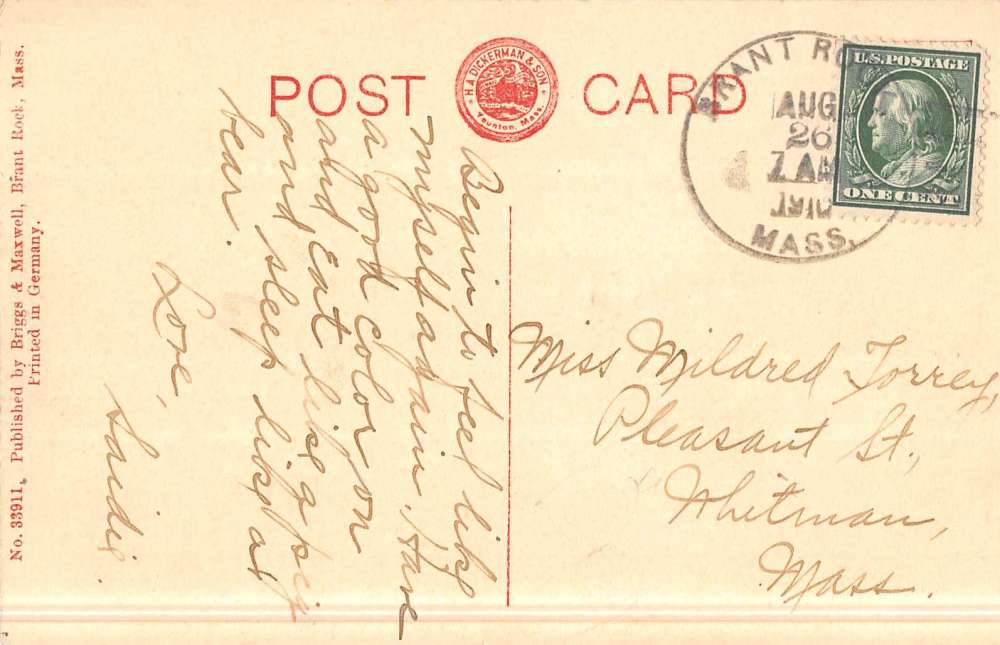 POST CARD
H.A. DICKERMAN & SON
Taunton, Mass.
BRANT RO
AUG
26
7 AM
1910
MASS.
U.S. POSTAGE
ONE CENT
No. 33911, Published by Briggs & Maxwell, Brant Rock, Mass.
Printed in Germany.
Begin to feel like
myself again. Have
a good color on
and Eat like a pig
and sleep like a
bear.
Love,
Miss Mildred Torrey,
Pleasant St.,
Whitman,
Mass.